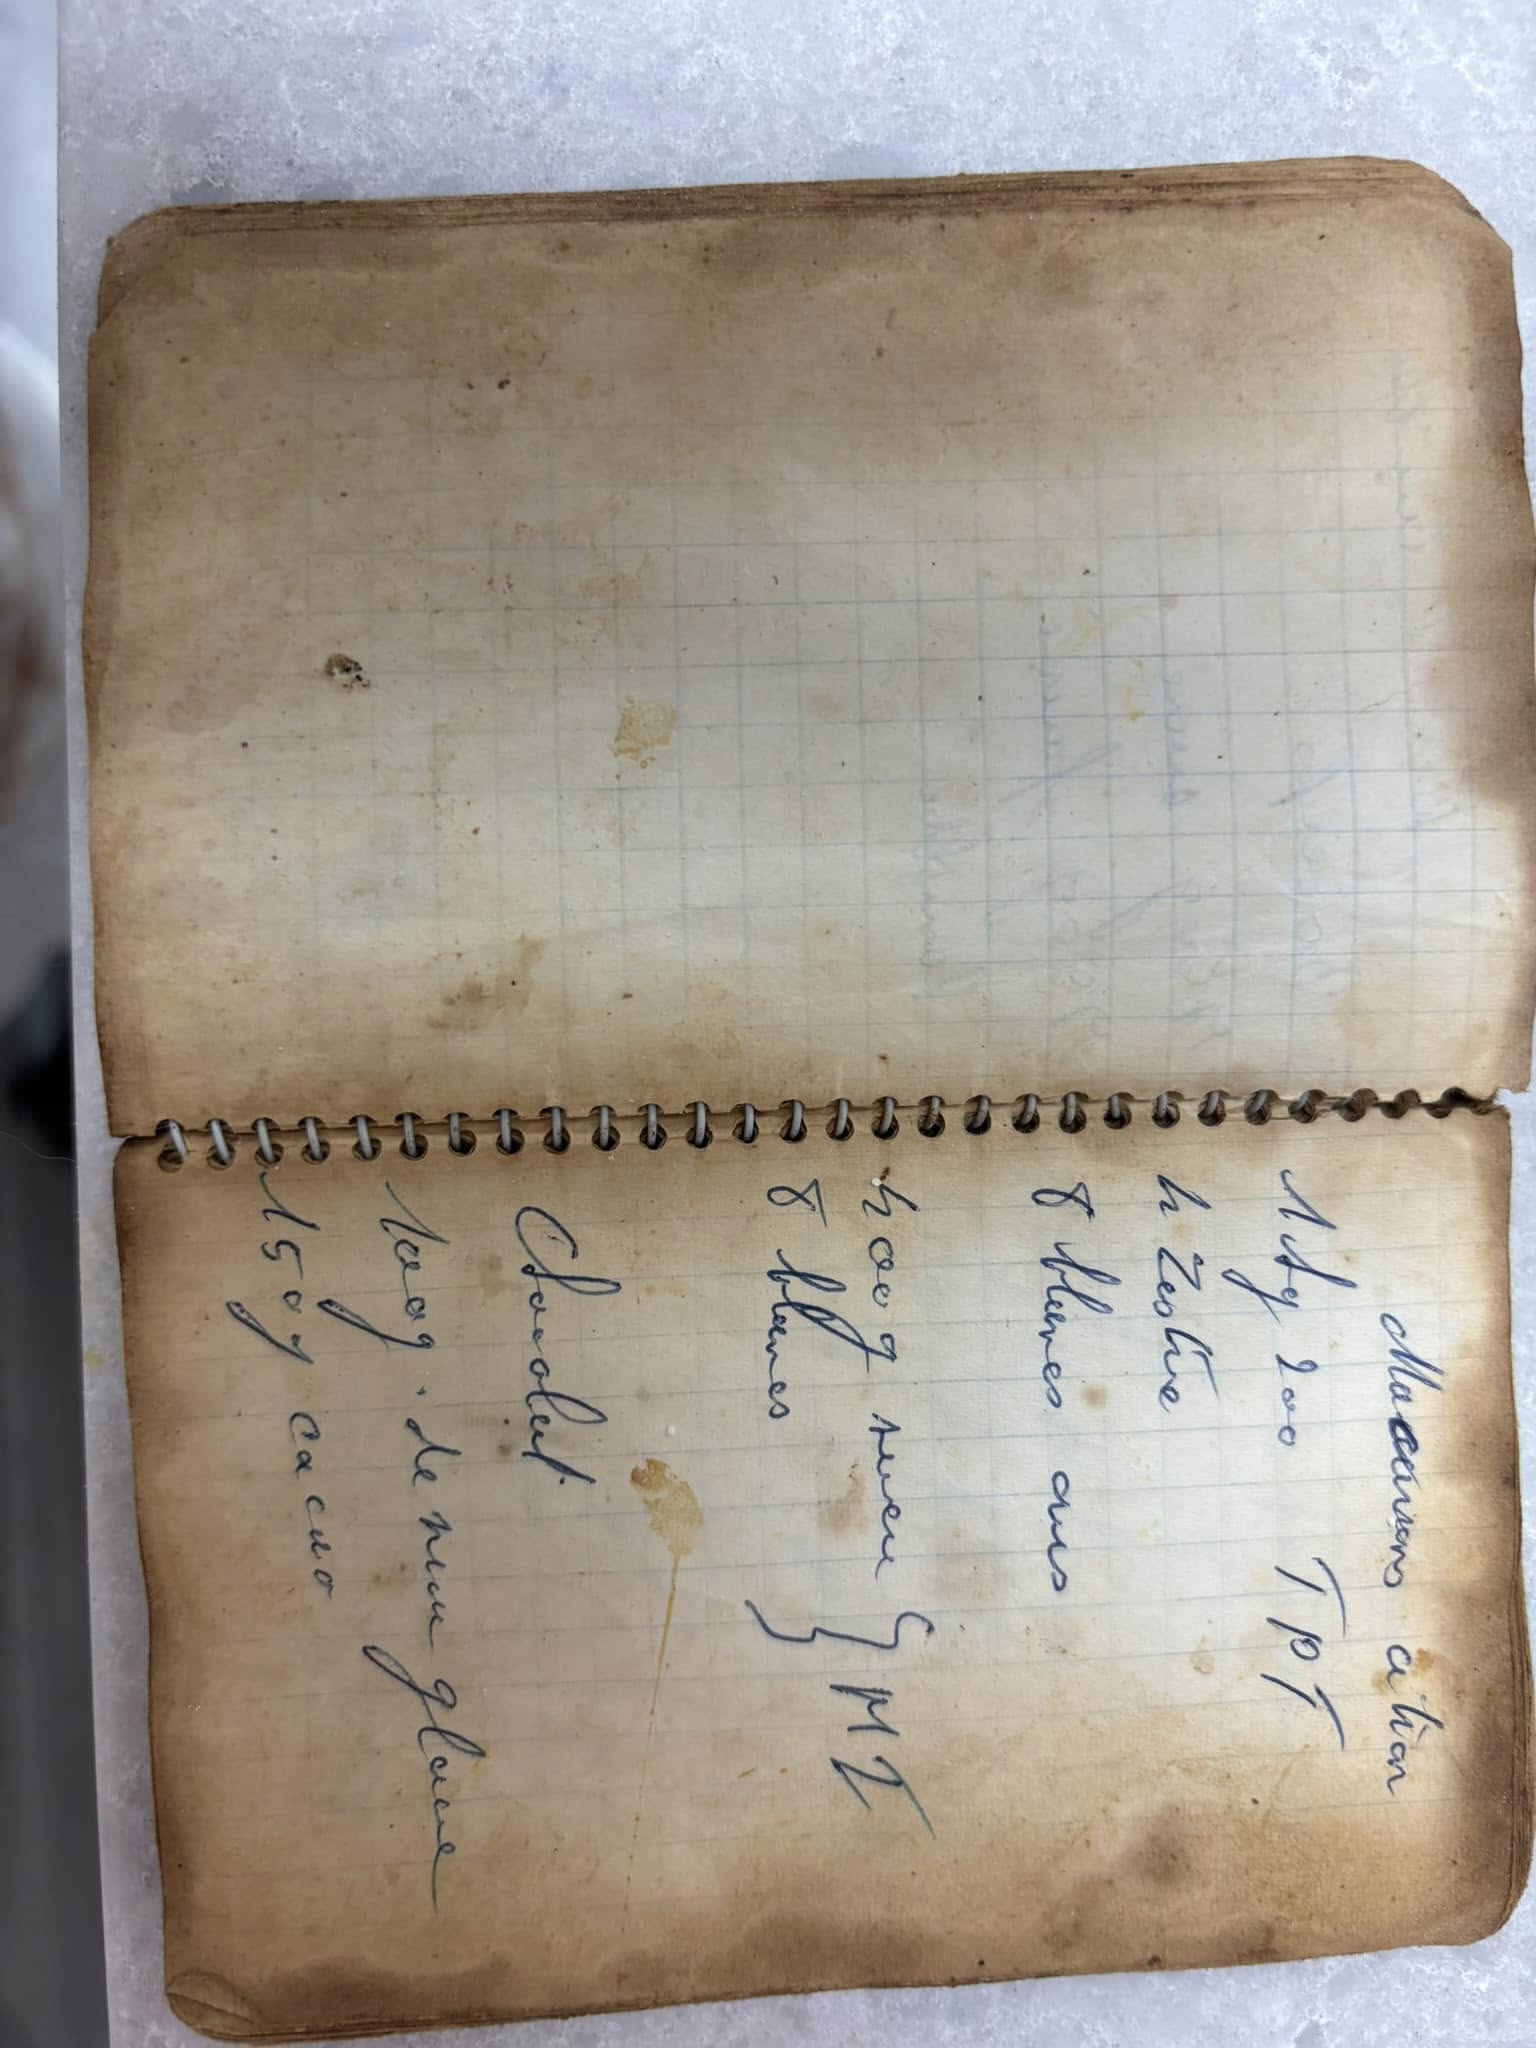 Macarons citron
1kg 200 TPT
4 Zestre
8 blancs
400g sucre } MI
8 blancs
Chocolat
100g . de sucre glace
150g cacao